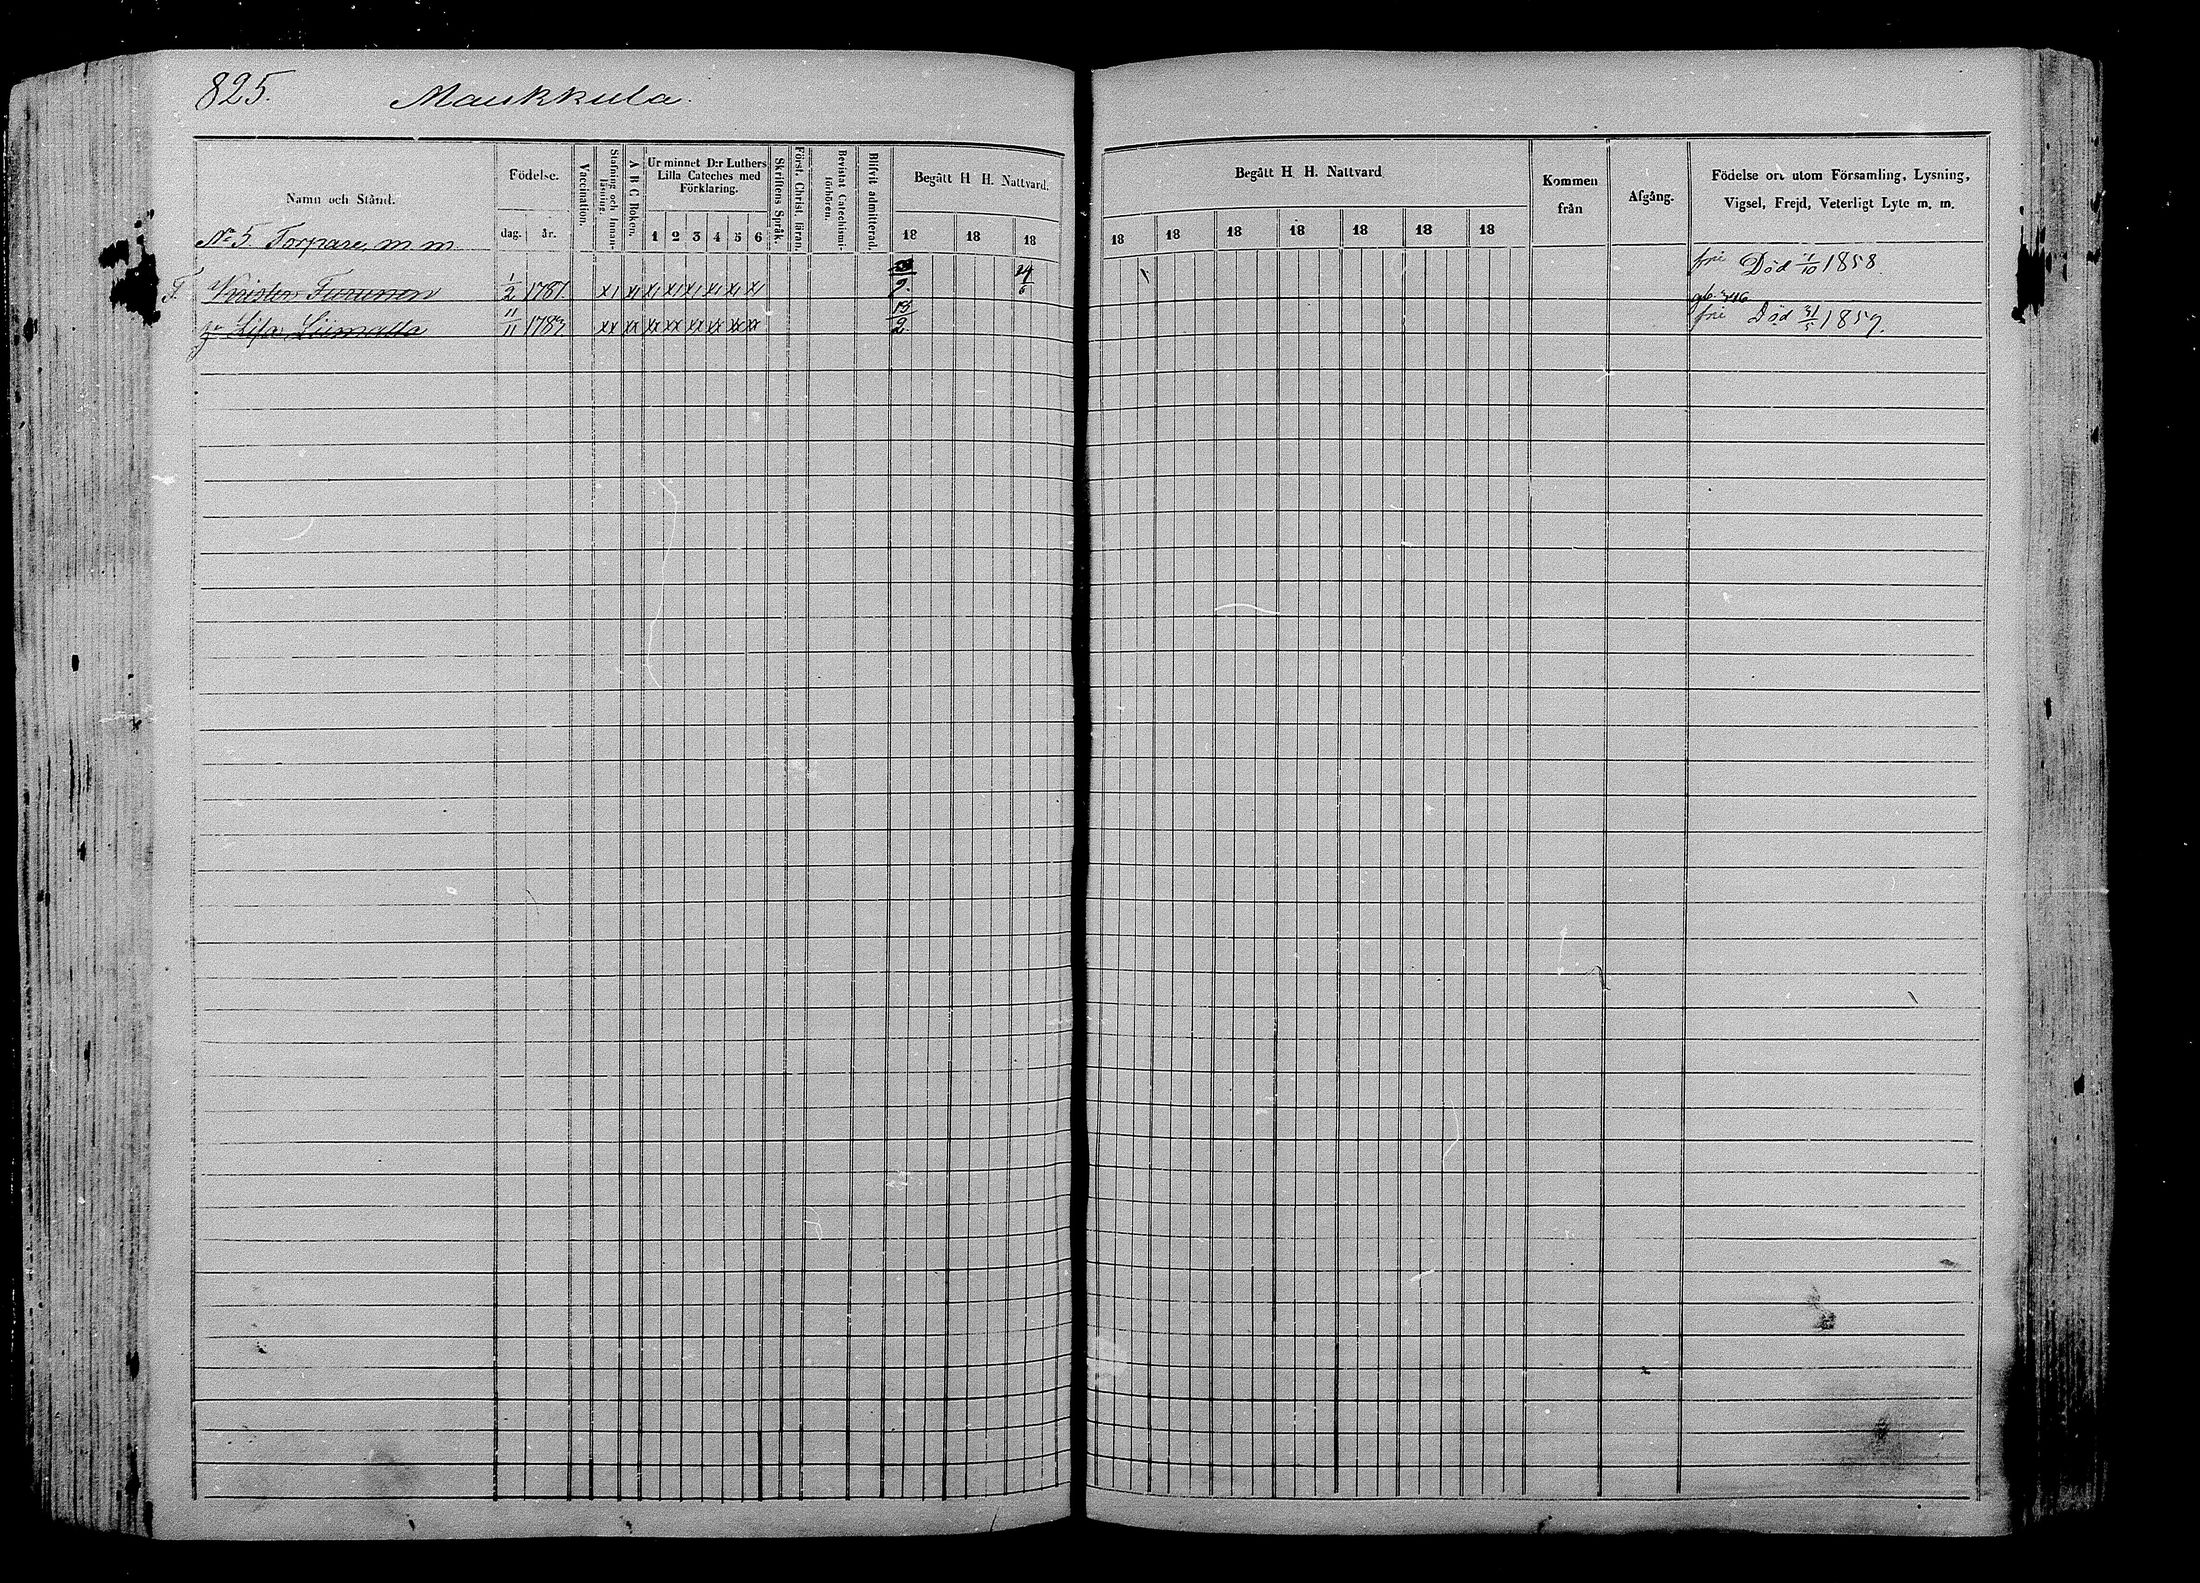 825. Maukkula.
Namn och Stånd.
Födelse.
dag. år.
Vaccination.
Stafning och Innan-
läsning.
A B C Boken.
Ur minnet D:r Luthers
Lilla Cateches med
Förklaring.
1 2 3 4 5 6
Skriftens Språk.
Först. Christ. läran.
Bevistat Catechismi-
förhören.
Blifvit admitterad.
Begått H. H. Nattvard.
18 18 18
Begått H. H. Nattvard
18 18 18 18 18 18 18
Kommen
från
Afgång.
Födelse ort utom Församling, Lysning,
Vigsel, Frejd, Veterligt Lyte m. m.
No 5 Torpare, m m
T. Krister Turunen 1/2 1781. x1 x1 x1 x1 x1 x1 x1 x1 9. 24/6 fri Död 1/10 1858.
hu Lisa Liimatta 11/11 1783. xx xx xx xx xx xx xx xx 15/2. fri Död 31/5 1859.